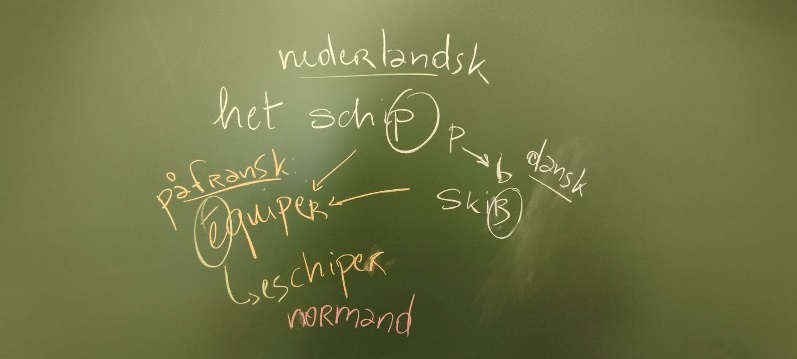 nederlandsk
het schip
p
b
dansk
skiB
på fransk
Équiper
eschiper
normand